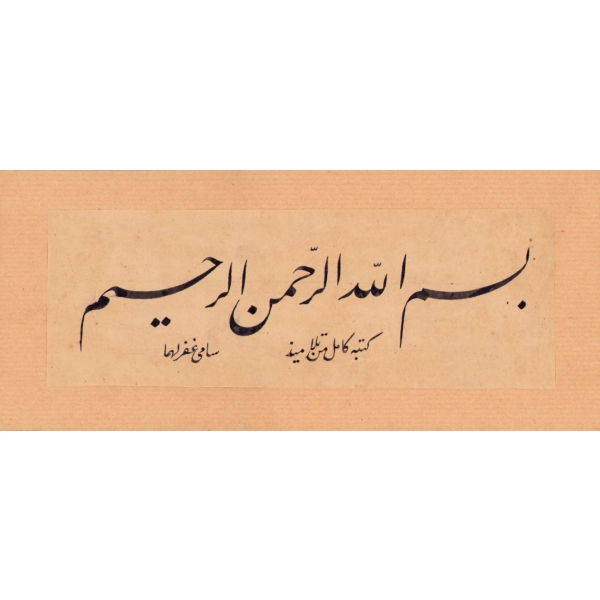 بسم الله الرّحمن الرحيم
كتبه كامل من تلاميذ سامي غفر لهما